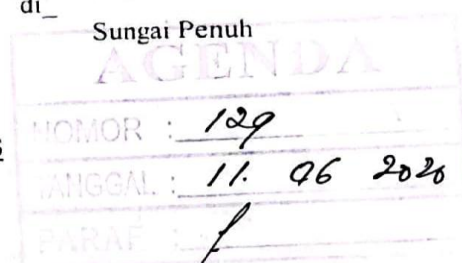 di_
Sungai Penuh
AGENDA
NOMOR : 129
TANGGAL : 11. 06 2020
PARAF :